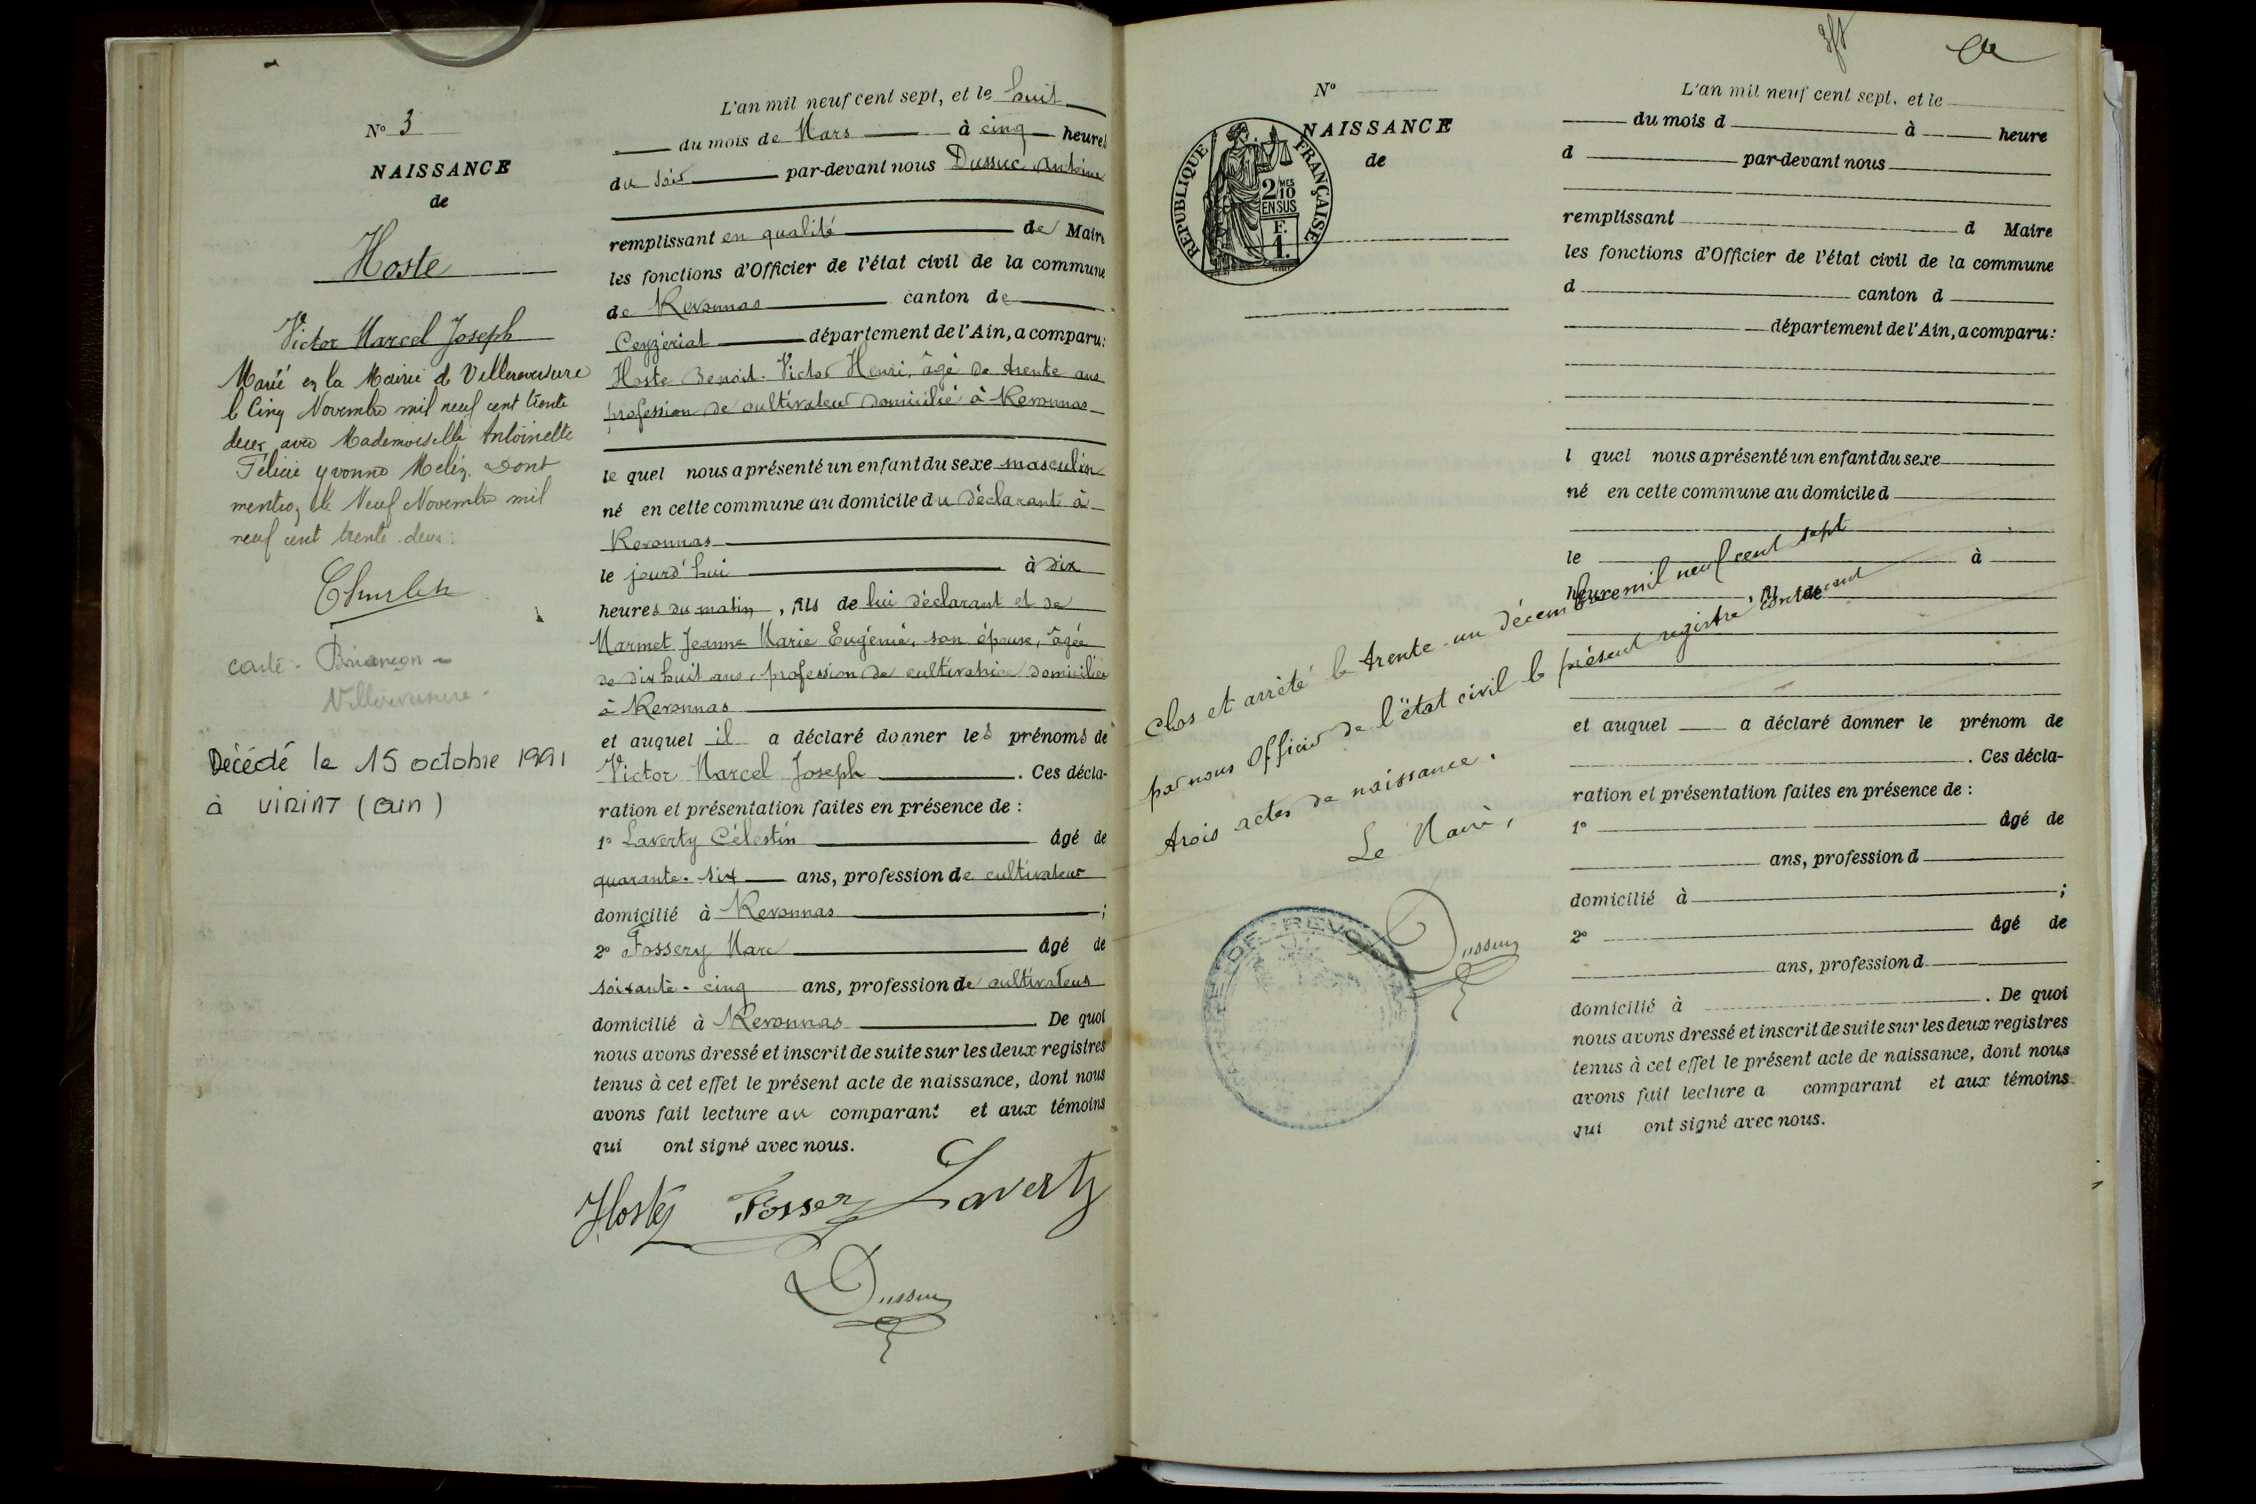 N° 3
NAISSANCE
de
Hoste
Victor Marcel Joseph
Marié en la Mairie de Villereversure
le Cinq Novembre mil neuf cent trente
deux avec Mademoiselle Antoinette
Félicie Yvonne Dont
mention le Neuf Novembre mil
neuf cent trente deux :
carte - Briançon -
Villereversure -
Décédé le 15 octobre 1991
à VIRIAT (Ain)
L'an mil neuf cent sept, et le huit
du mois de Mars à cinq heures
du soir par-devant nous Dussuc Antoine
remplissant en qualité de Maire
les fonctions d'Officier de l'état civil de la commune
de Revonnas canton de
Ceyzériat département de l'Ain, a comparu :
Hoste Benoit Victor Henri, âgé de trente ans
profession de cultivateur domicilié à Revonnas
le quel nous a présenté un enfant du sexe masculin
né en cette commune au domicile du déclarant à
Revonnas
le jourd'hui à dix
heures du matin, fils de lui déclarant et de
Marmet Jeanne Marie Eugénie, son épouse, âgée
de dix huit ans, profession de cultivatrice domiciliée
à Revonnas
et auquel il a déclaré donner les prénoms de
Victor Marcel Joseph . Ces décla-
ration et présentation faites en présence de :
1° Laverty Célestin âgé de
quarante-six ans, profession de cultivateur
domicilié à Revonnas ;
2° Fossery Marc âgé de
soixante-cinq ans, profession de cultivateur
domicilié à Revonnas . De quoi
nous avons dressé et inscrit de suite sur les deux registres
tenus à cet effet le présent acte de naissance, dont nous
avons fait lecture au comparant et aux témoins
qui ont signé avec nous.
Hoste Fossery Laverty
Dussuc
N°
NAISSANCE
de
RÉPUBLIQUE FRANÇAISE
2/10 MES
EN SUS
F.
1.
L'an mil neuf cent sept, et le
du mois d à heure
d par-devant nous
remplissant d Maire
les fonctions d'Officier de l'état civil de la commune
d canton d
département de l'Ain, a comparu :
l quel nous a présenté un enfant du sexe
né en cette commune au domicile d
le à
heure , fil de
et auquel a déclaré donner le prénom de
. Ces décla-
ration et présentation faites en présence de :
1° âgé de
ans, profession d
domicilié à ;
2° âgé de
ans, profession d
domicilié à . De quoi
nous avons dressé et inscrit de suite sur les deux registres
tenus à cet effet le présent acte de naissance, dont nous
avons fait lecture a comparant et aux témoins
qui ont signé avec nous.
Clos et arrêté le trente-un décembre mil neuf cent sept
par nous Officier de l'état civil le présent registre contenant
trois actes de naissance.
Le Maire,
Dussuc
DE REVONNAS